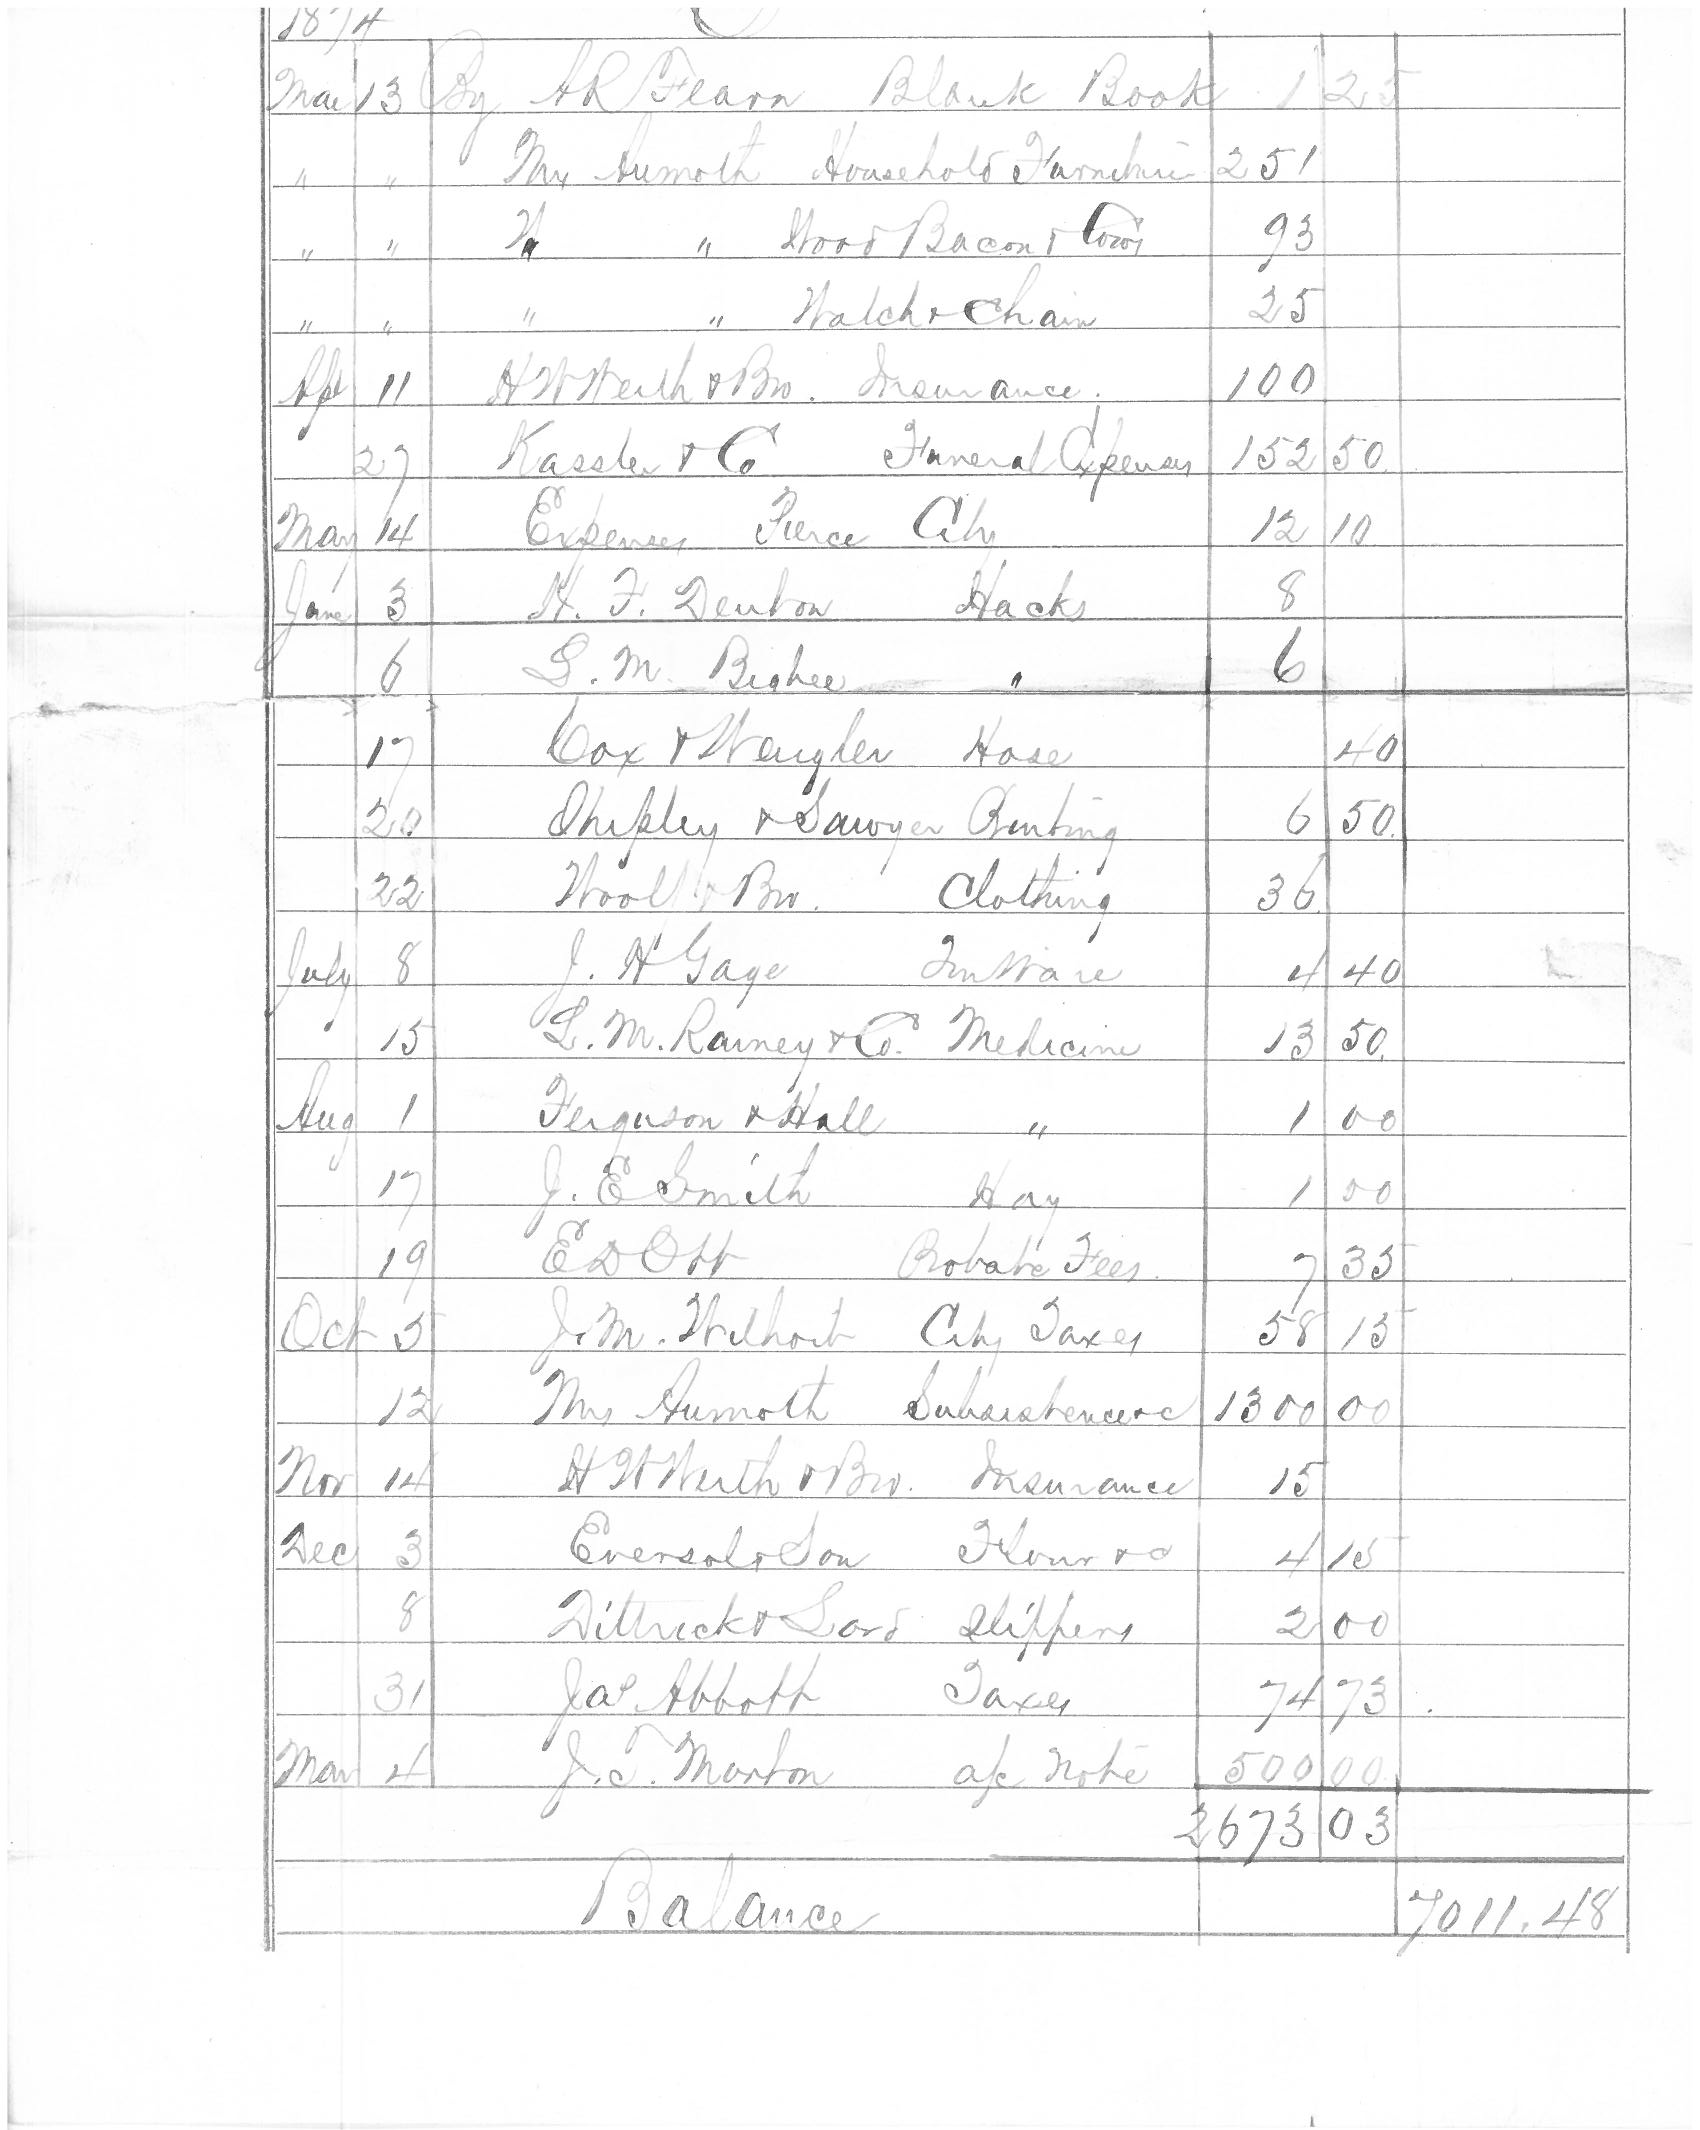 1874
Mar 13 By A R Fearn Blank Book 1 25
" " Mrs Aumoth Household Furniture 251
" " " " Wood Bacon & Cows 93
" " " " Watch & Chain 25
Apl 11 H W Werth & Bro. Insurance. 100
27 Kassler & Co Funeral Expenses 152 50
May 14 Expenses Pierce City 12 10
June 3 H. F. Denton Hacks 8
6 L. M. Bigbee " 6
17 Cox & Hose 40
20 Shipley & Sawyer Bunting 6 50
22 Woolf & Bro. Clothing 36
July 8 J. H Gage Tin Ware 4 40
15 L. M. Rainey & Co. Medicine 13 50
Aug 1 Ferguson & Hall " 1 00
17 J. E Smith Hay 1 00
19 E D Ott Probate Fees 7 35
Oct 5 J. M. Wilhoit City Taxes 58 15
12 Mrs Aumoth Subsistence &c 1300 00
Nov 14 H W Werth & Bro. Insurance 15
Dec 3 Eversol & Son Flour &c 4 15
8 Dittrick & Lord Slippers 2 00
31 Jas Abbott Taxes 74 73
Mar 4 J. T. Morton a/c Note 500 00
2673 03
Balance 7011.48